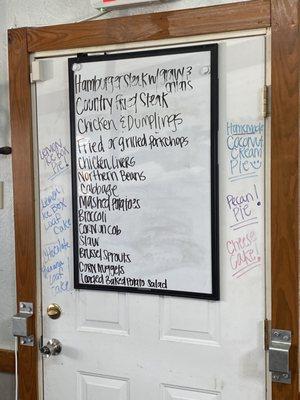 Hamburger Steak w/ gravy & onions
Country Fried Steak
Chicken & Dumplings
Fried or grilled porkchops
Chicken Livers
Northern Beans
Cabbage
Mashed Potatoes
Broccoli
Corn on Cob
Slaw
Brussel Sprouts
Corn Nuggets
Loaded Baked Potato Salad
Lemon
Icebox
Pie
Lemon
Ice Box
Loaf
Cake
Chocolate
Banana
Loaf
Cake
Homemade
Coconut
Cream
Pie
Pecan
Pie!
Cheese
cake!